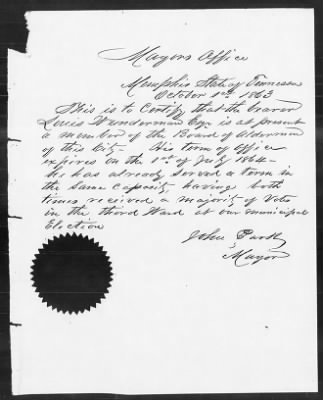 Mayors Office
Memphis State of Tennessee
October 1st 1863
This is to Certify that the bearer
Louis Wunderman Esqr is at present
a member of the Board of Aldermen
of this City - His term of Office
expires on the 1st of July 1864 -
he has already served a term in
the same Capacity having both
times received a majority of Votes
in the third Ward at our municipal
Election
John Park
Mayor